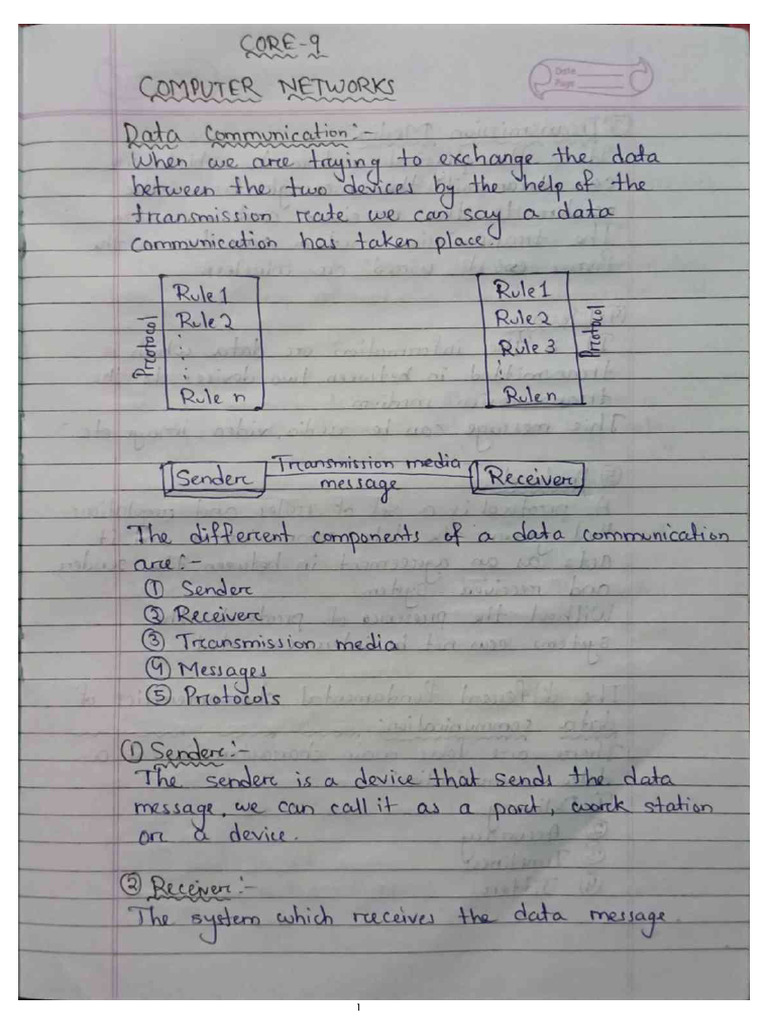 CORE-9
COMPUTER NETWORKS
Date
Page
Data Communication:-
When we are trying to exchange the data
between the two devices by the help of the
transmission rate we can say a data
communication has taken place.
Protocol
Rule 1
Rule 2
:
:
Rule n
Rule 1
Rule 2
Rule 3
:
Rule n
Protocol
Sender
Transmission media
message
Receiver
The different components of a data communication
are:-
① Sender
② Receiver
③ Transmission media
④ Messages
⑤ Protocols
① Sender:-
The sender is a device that sends the data
message, we can call it as a port, work station
or a device.
② Receiver:-
The system which receives the data message.
1